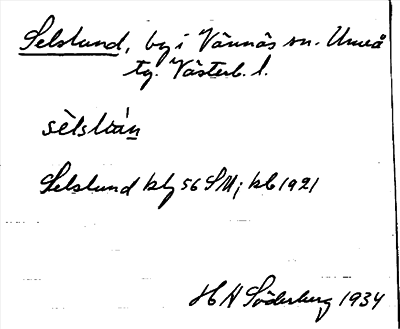 Selslund, by i Vännäs sn. Umeå
tg. Västerb. l.
Selslund 56 SM; kb 1921
H N Söderberg 1934